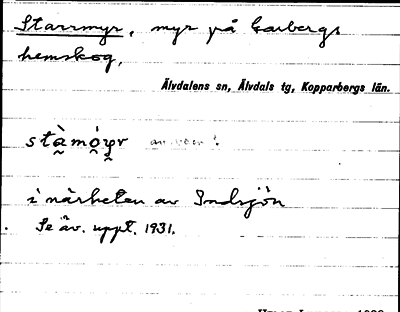 Starrmyr, myr på Garbergs
hemskog,
Älvdalens sn, Älvdals tg, Kopparbergs län.
i närheten av Indsjön
Se äv. uppt. 1931.